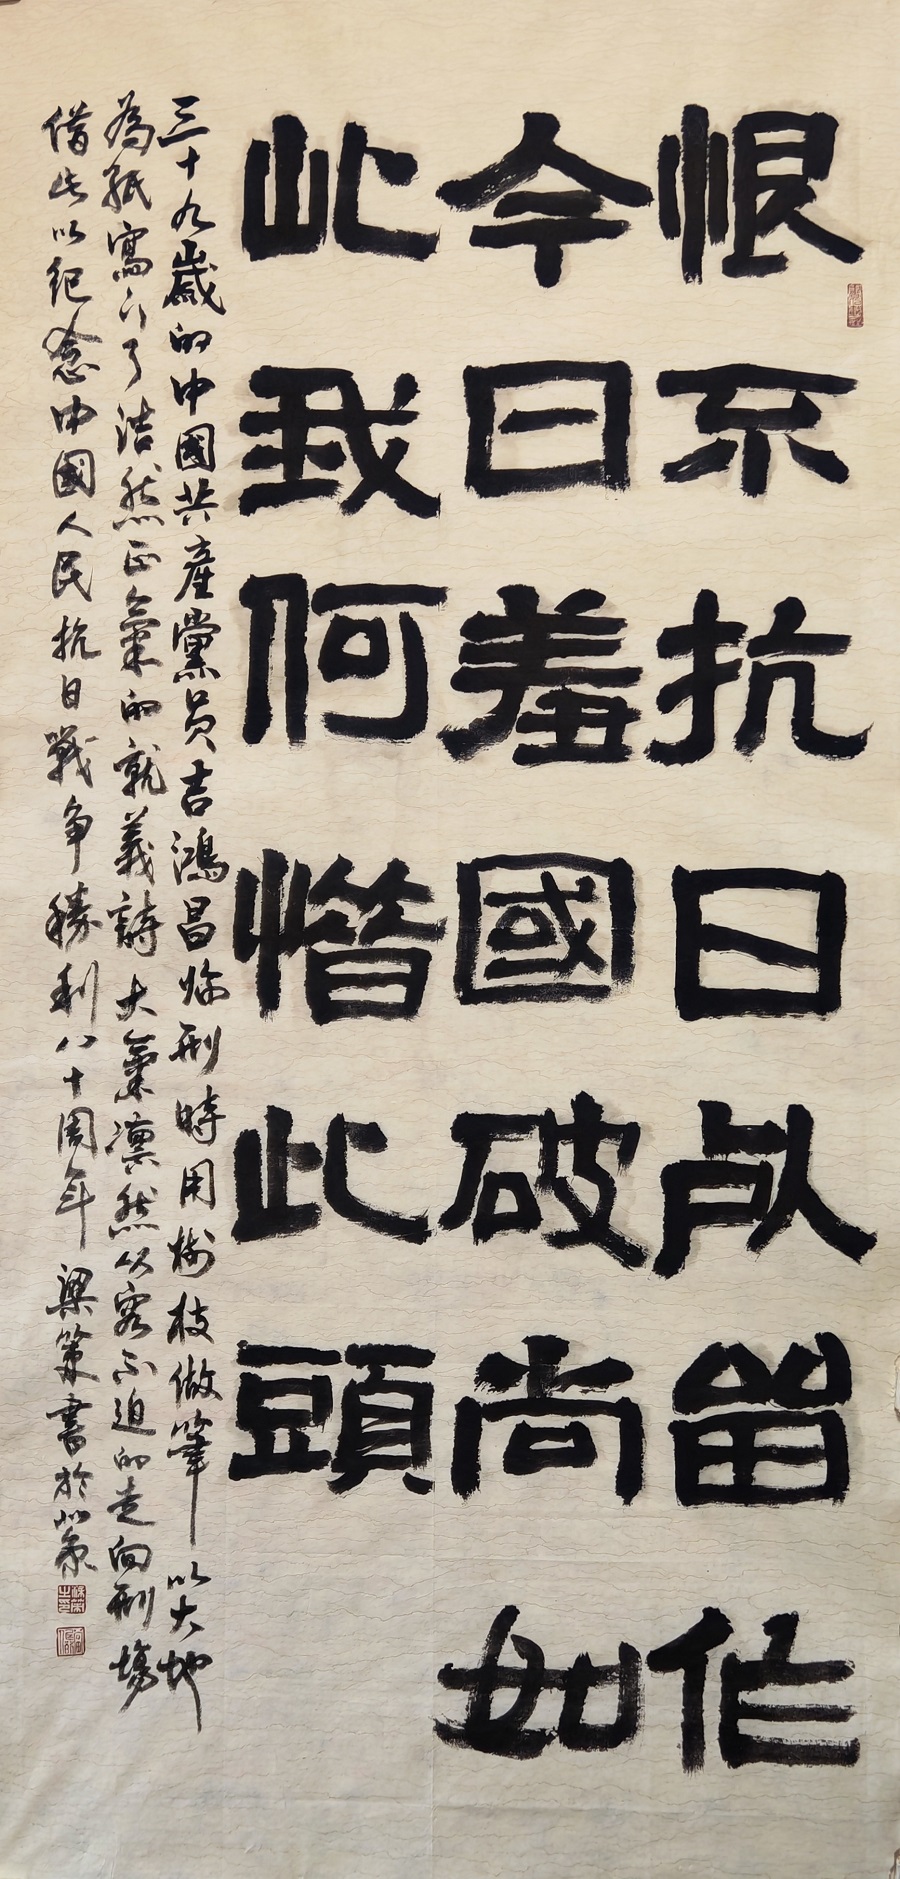 恨不抗日死留作
今日羞國破尚如
此我何惜此頭
三十九歲的中國共產黨員吉鴻昌臨刑時用樹枝做筆以大地
為紙寫下了浩然正氣的就義詩大氣凜然从容不迫的走向刑場
借此以紀念中國人民抗日戰争勝利八十周年梁策書於北京